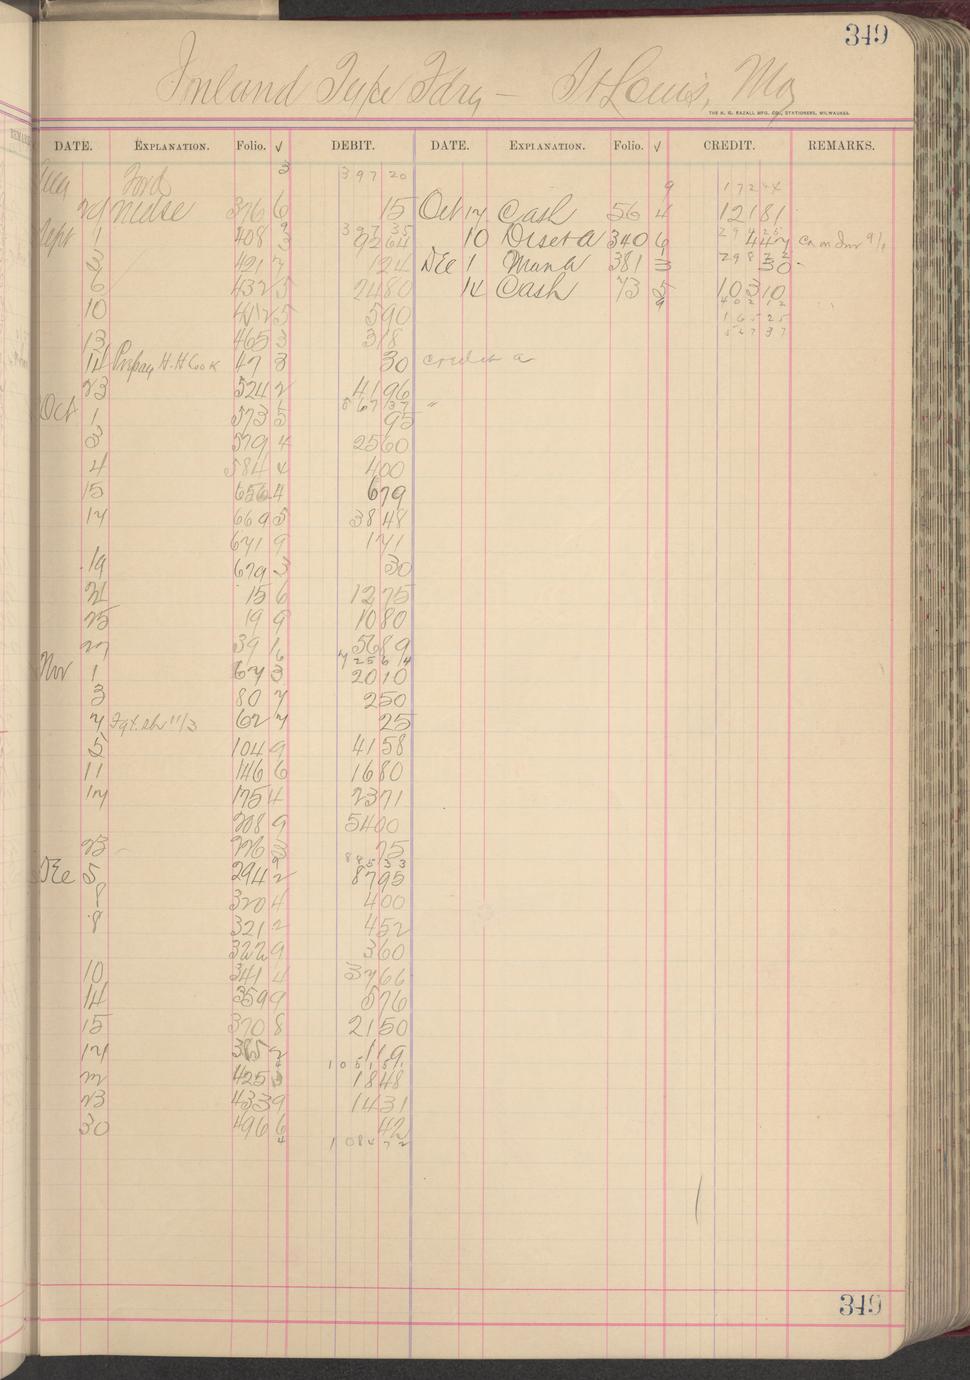 349
Inland Type Fdry — St Louis, Mo
THE H. G. RAZALL MFG. CO., STATIONERS, MILWAUKEE.
DATE. EXPLANATION. Folio. √ DEBIT. DATE. EXPLANATION. Folio. √ CREDIT. REMARKS.
Aug Ford 3 397 20 9 172 44
29 Mdse 376 6 15 Oct 17 Cash 56 4 121 81
397 35 294 25
Sept 1 408 3 92 64 10 Disct a 340 6 4 47
3 421 7 1 24 Dec 1 Man a 381 3 30
298 72
6 432 5 24 80 14 Cash 73 5 103 10
402 12
10 442 5 5 90 165 25
567 37
13 465 3 3 18
14 Prepay H. H Cook 47 3 30 credit a
23 524 2 41 96
567 37
Oct 1 573 5 95
3 579 4 25 60
4 584 4 4 00
15 656 4 6 79
17 669 5 38 48
671 9 1 71
19 679 3 30
21 15 6 12 75
25 19 9 10 80
27 39 1 56 89
725 61 4
Nov 1 67 3 20 10
3 80 7 2 50
7 Fgt. 11/3 62 7 25
5 104 9 41 58
11 146 6 16 80
17 175 4 23 71
208 9 54 00
23 226 3 75
Dec 5 294 2 87 95
8 320 4 4 00
8 321 2 4 52
322 9 3 60
10 341 4 37 66
14 359 9 5 76
15 370 8 21 50
17 385 2 1 19
22 425 3 18 48
23 433 9 14 31
30 496 6 42
349